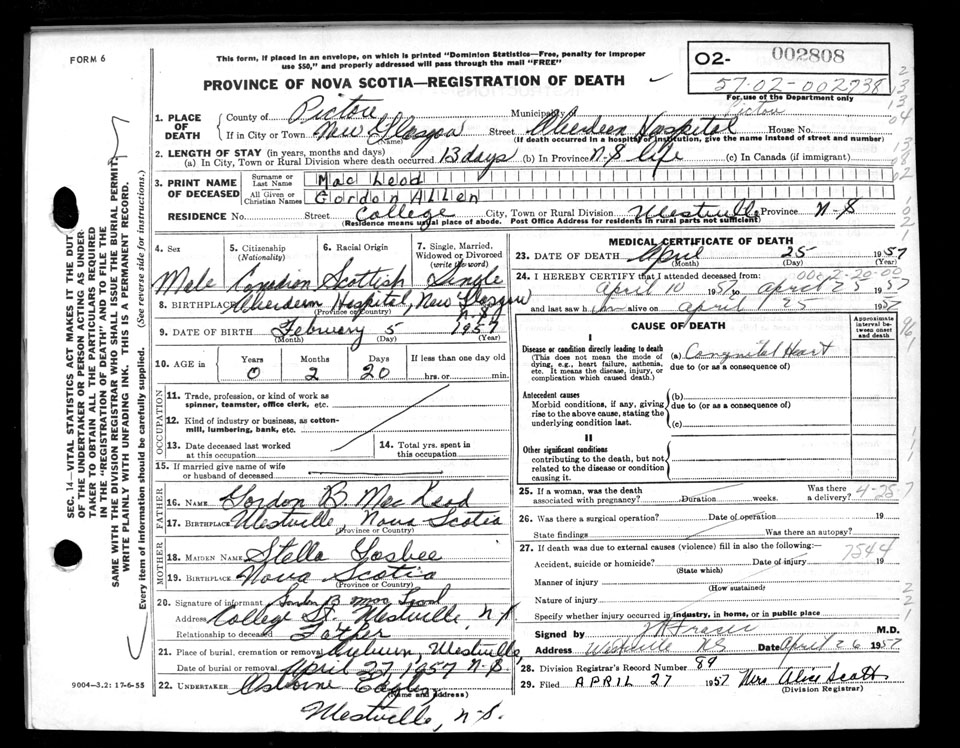 FORM 6
This form, if placed in an envelope, on which is printed "Dominion Statistics—Free, penalty for improper
use $50," and properly addressed will pass through the mail "FREE"
PROVINCE OF NOVA SCOTIA—REGISTRATION OF DEATH
O2- 002808
57-02-002738
For use of the Department only
1. PLACE OF DEATH
County of Pictou Municipality of Pictou
If in City or Town New Glasgow Street Aberdeen Hospital House No.
(Name) (If death occurred in a hospital or institution, give the name instead of street and number)
2. LENGTH OF STAY (in years, months and days)
(a) In City, Town or Rural Division where death occurred 13 days (b) In Province N-S life (c) In Canada (if immigrant)
3. PRINT NAME OF DECEASED
Surname or Last Name Mac Leod
All Given or Christian Names Gordon Allen
RESIDENCE No. Street College City, Town or Rural Division Westville Province N-S
(Residence means usual place of abode. Post Office Address for residents in rural parts not sufficient)
4. Sex 5. Citizenship (Nationality) 6. Racial Origin 7. Single, Married, Widowed or Divorced (write the word)
Male Canadian Scottish Single
8. BIRTHPLACE Aberdeen Hospital, New Glasgow
(Province or Country) N-S
9. DATE OF BIRTH February 5 1957
(Month) (Day) (Year)
10. AGE in Years Months Days If less than one day old
0 2 20 hrs. or min.
OCCUPATION
11. Trade, profession, or kind of work as
spinner, teamster, office clerk, etc.
12. Kind of industry or business, as cotton-
mill, lumbering, bank, etc.
13. Date deceased last worked
at this occupation
14. Total yrs. spent in
this occupation
15. If married give name of wife
or husband of deceased
FATHER
16. NAME Gordon B. Mac Leod
17. BIRTHPLACE Westville, Nova Scotia
(Province or Country)
MOTHER
18. MAIDEN NAME Stella
19. BIRTHPLACE Nova Scotia
(Province or Country)
20. Signature of informant Gordon B Mac Leod
Address College St. Westville, N-S
Relationship to deceased Father
21. Place of burial, cremation or removal Auburn, Westville,
Date of burial or removal April 27 1957 N-S.
22. UNDERTAKER Osborne
(Name and address)
Westville, N-S.
9004-3.2: 17-6-55
MEDICAL CERTIFICATE OF DEATH
23. DATE OF DEATH April 25 1957
(Month) (Day) (Year)
24. I HEREBY CERTIFY that I attended deceased from:
April 10 1957 to April 25 1957
and last saw him alive on April 25 1957
CAUSE OF DEATH
Approximate interval between onset and death
I
Disease or condition directly leading to death
(This does not mean the mode of
dying, e.g., heart failure, asthenia,
etc. It means the disease, injury, or
complication which caused death.)
(a) Congenital Heart
due to (or as a consequence of)
Antecedent causes
Morbid conditions, if any, giving
rise to the above cause, stating the
underlying condition last.
(b)
due to (or as a consequence of)
(c)
II
Other significant conditions
contributing to the death, but not
related to the disease or condition
causing it.
25. If a woman, was the death
associated with pregnancy? Duration weeks. Was there a delivery?
4-25-7
26. Was there a surgical operation? Date of operation 19
State findings Was there an autopsy?
27. If death was due to external causes (violence) fill in also the following:—
7544
Accident, suicide or homicide? Date of injury 19
(State which)
Manner of injury
(How sustained)
Nature of injury
Specify whether injury occurred in industry, in home, or in public place
Signed by Fraser M.D.
Address Westville NS Date April 26 1957
28. Division Registrar's Record Number 89
29. Filed APRIL 27 1957 Mrs Alice Scott
(Division Registrar)
SEC. 14—VITAL STATISTICS ACT MAKES IT THE DUTY
OF THE UNDERTAKER OR PERSON ACTING AS UNDER-
TAKER TO OBTAIN ALL THE PARTICULARS REQUIRED
IN THE "REGISTRATION OF DEATH" AND TO FILE THE
SAME WITH THE DIVISION REGISTRAR WHO SHALL ISSUE THE BURIAL PERMIT.
WRITE PLAINLY WITH UNFADING INK. THIS IS A PERMANENT RECORD.
Every item of information should be carefully supplied. (See reverse side for instructions.)